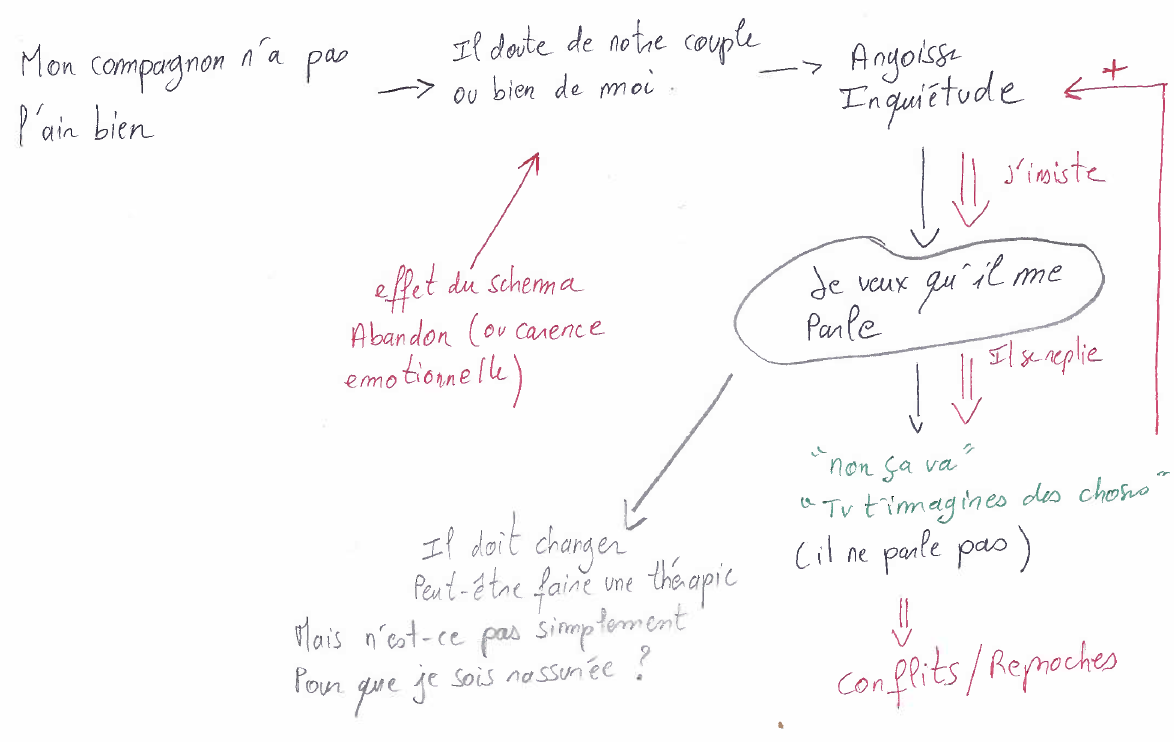 Mon compagnon n'a pas
l'air bien
Il doute de notre couple
ou bien de moi.
Angoisse
Inquiétude
+
J'insiste
effet du schema
Abandon (ou carence
emotionnelle)
Je veux qu'il me
Parle
Il se replie
"non ça va"
"Tu t'imagines des choses"
(il ne parle pas)
Il doit changer
Peut-être faire une thérapie
Mais n'est-ce pas simplement
Pour que je sois rassurée ?
Conflits/Reproches